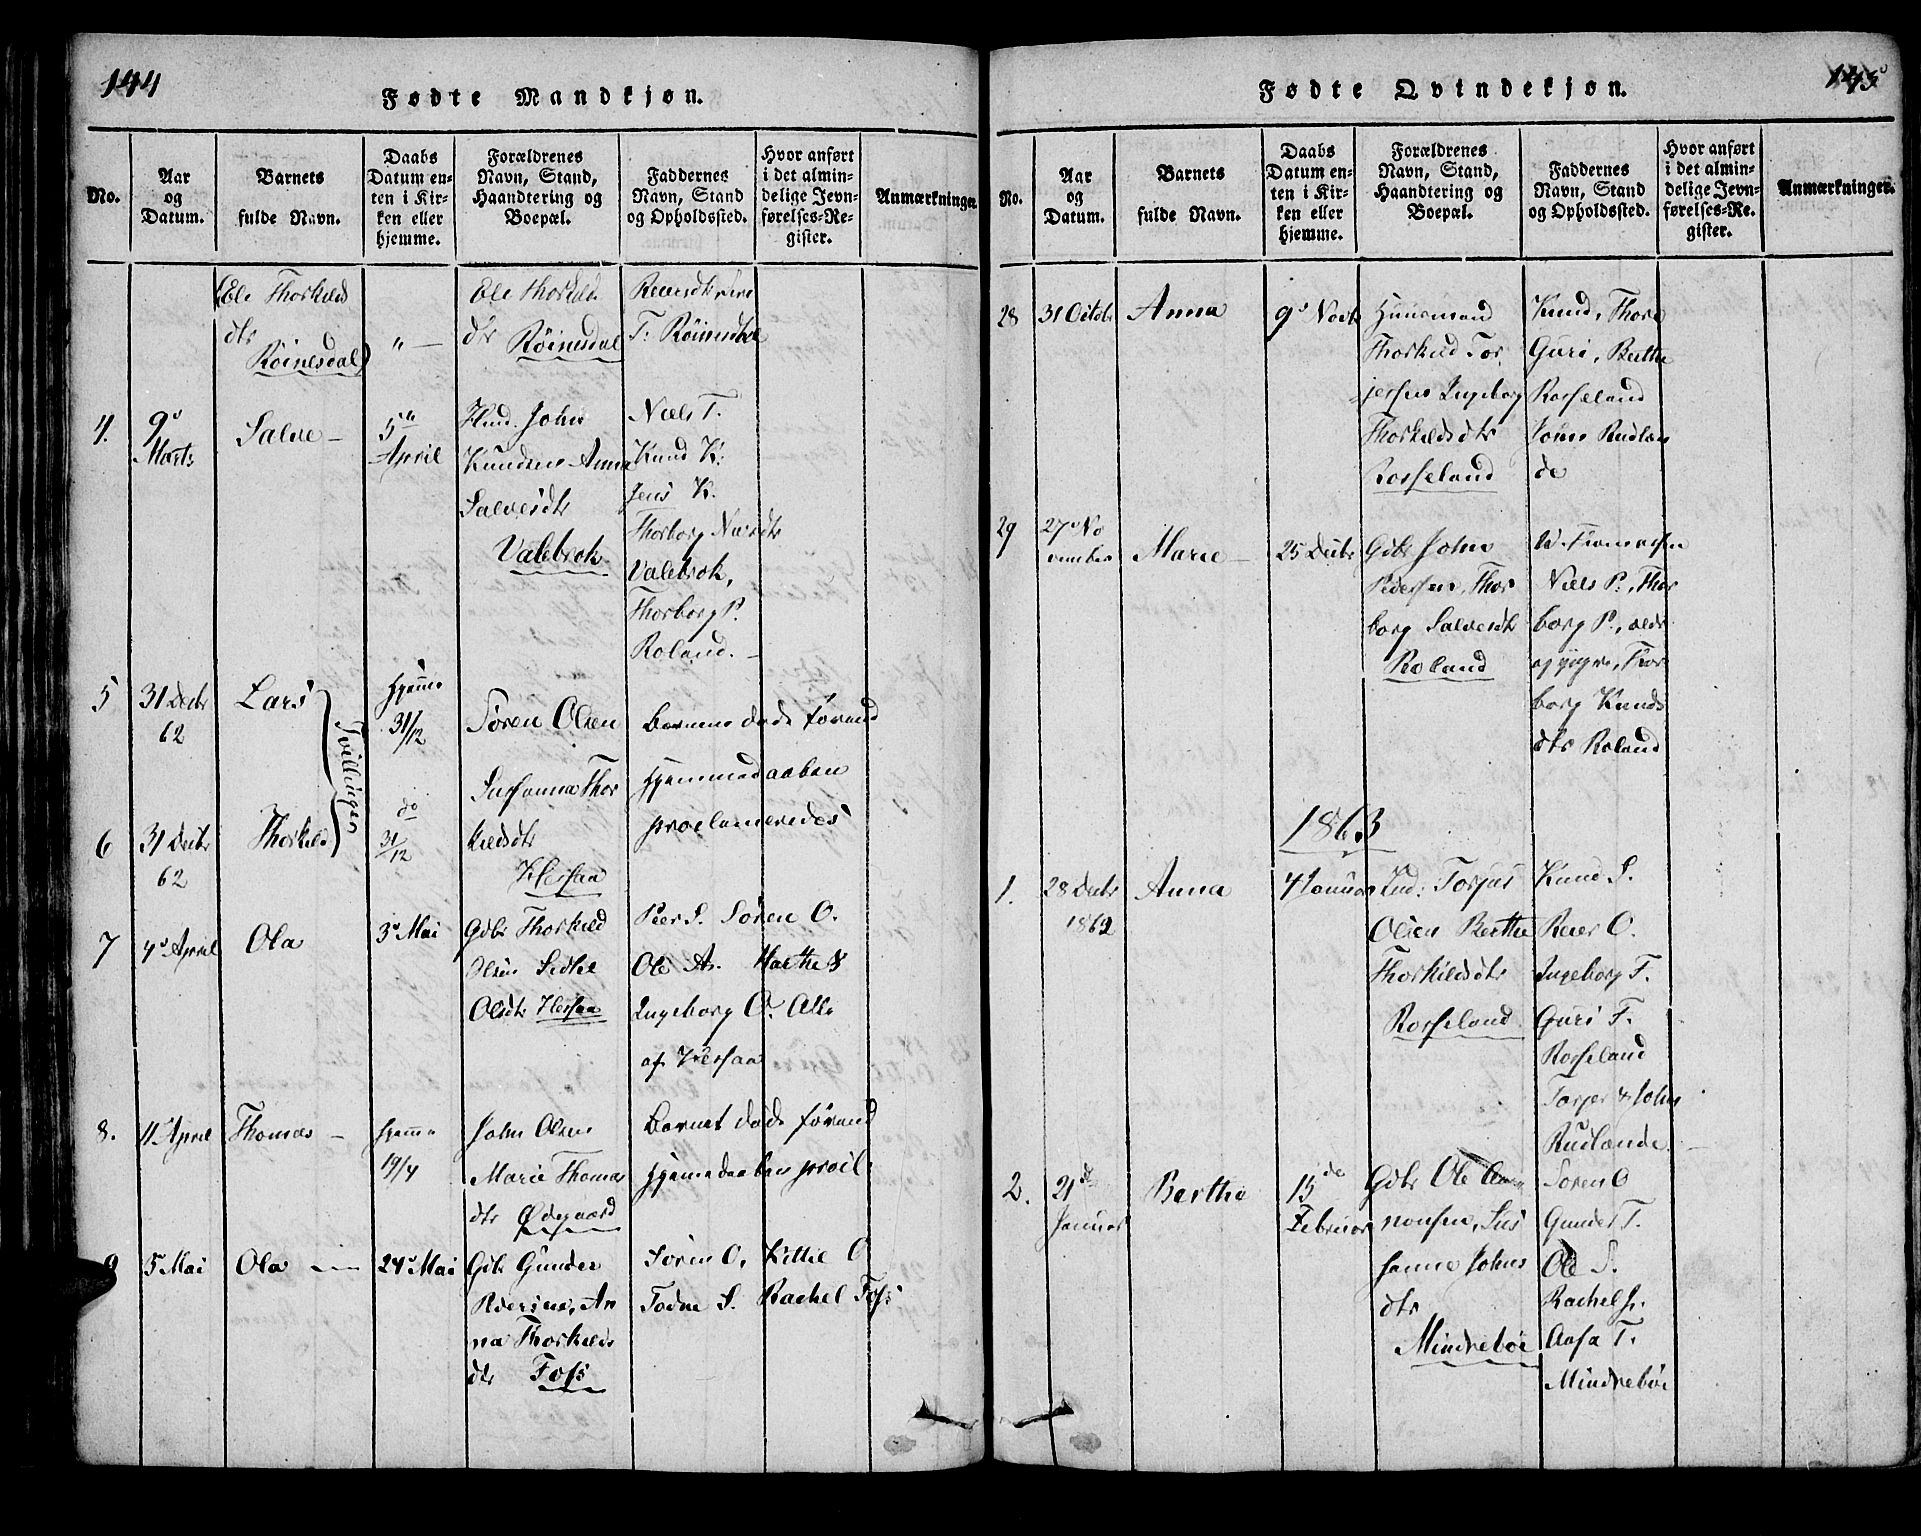 144
Fødte Mandkjøn.
No.
Aar
og
Datum.
Barnets
fulde Navn.
Daabs
Datum en-
ten i Kir-
ken eller
hjemme.
Forældrenes
Navn, Stand,
Haandtering og
Boepæl.
Faddernes
Navn, Stand
og Opholdssted.
Hvor anført
i det almin-
delige Jevn-
førelses-Re-
gister.
Anmærkninger.
(Ole Thorkilds
dtr
Røinesdal)
" —
Ole Thorkilds
dtr
Røinesdal
T: Røinesdal
4.
9de
Marts
Salve —
5te
April
Hmd. John
Knudsen Anna
Salvesdtr
Valebrok
Niels T.
Knud K:
Jens K.
Thorborg Nielsdtr
Valebrok,
Thorborg P.
Roland. —
5
31 Decbr
62
Lars
Tvillinger
hjemme
31/12
Søren Olsen
Susanna Thor
Børnene døde førend
hjemmedaaben
proclameredes
6
31 Decbr
62
Thorkild
do
31/12
kildsdtr
Hersaa
7
4de April
Ola
3de Mai
Gdbr Thorkild
Olsen Sidsel
Olsdtr Hersaa
Peer S. Søren O.
Ole A. Marthe S
Ingeborg O. Alle
af Hersaa
8.
11 April
Thomas —
hjemme
19/4
John Olsen
Marie Thomas
dtr Ødegaard
Barnet døde førend
hjemedaaben procl.
9
5 Mai
Ola —
24de Mai
Gdbr Gunder
Pedersen, An
na Thorkilds
dtr Foss
Søren O, Kittil O
Todne S. Rachel Foss
145
Fødte Qvindekjøn.
No.
Aar
og
Datum.
Barnets
fulde Navn.
Daabs
Datum en-
ten i Kir-
ken eller
hjemme.
Forældrenes
Navn, Stand,
Haandtering og
Boepæl.
Faddernes
Navn, Stand
og Opholdssted.
Hvor anført
i det almin-
delige Jevn-
førelses-Re-
gister.
Anmærkninger.
28
31 Octobr
Anna
9de Novbr
Huusmand
Thorkild Tor
jersen Ingeborg
Thorkildsdtr
Rosseland
Knud, Thore
Guri, Berthe
Rosseland
Rudlan
de
29
27de No
vember
Marie —
25 Decbr
Gdbr John
Pedersen, Thor
borg Salvesdtr
Roland
Niels P:, Thor
borg P., ældr
og yngre, Thor
borg Knuds
dtr Roland
1863
1.
28 Decbr
1862
Anna
4 Januar
Ind: Torjus
Olsen Berthe
Thorkildsdtr
Rosseland
Knud S.
Reier O.
Ingeborg T.
Guri T.
Rosseland
Torjer & John
Rudlande
2.
21de
Januar
Berthe
15de
Februar
Gdbr Ole Aa
nonsen, Sus
sanne Johns
dtr
Mindrebøe
Søren O
Gunder T.
Ole S.
Rachel J.
Aasa T.
Mindrebøe